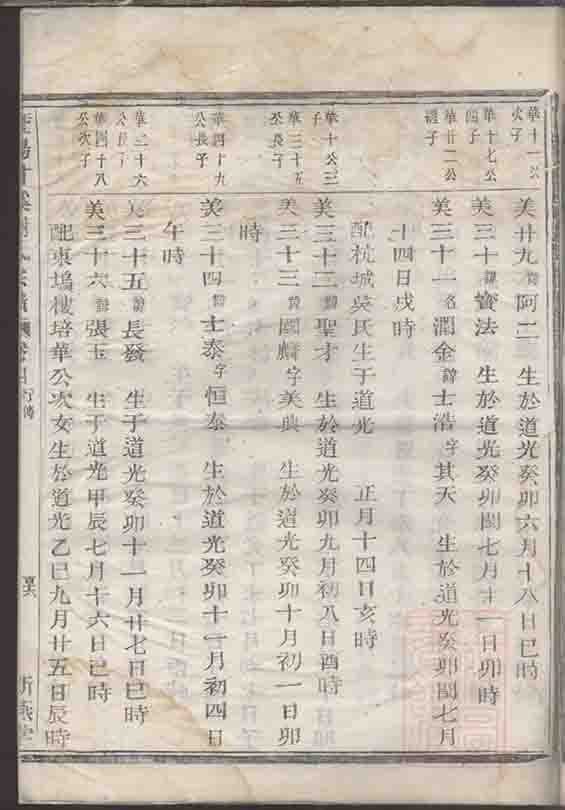 華十一公
次子
美廿九 諱 阿二 生於道光癸卯六月十八日巳時
華十七公
四子
美三十 諱 寶法 生於道光癸卯閏七月十一日卯時
華廿二公
禮子
美三十一 名 潤金 諱 士浩 字 其天 生於道光癸卯閏七月
十四日戌時
配杭城吳氏生于道光 正月十四日亥時
華十公三
子
美三十二 諱 聖才 生於道光癸卯九月初八日酉時
華三十五
公長子
美三十三 諱 國麟 字 美典 生於道光癸卯十月初一日卯
時
華四十九
公長子
美三十四 諱 士泰 字 恒泰 生於道光癸卯十一月初四日
午時
華二十六
公長子
美三十五 諱 長發 生于道光癸卯十一月廿七日巳時
華四十八
公次子
美三十六 諱 張玉 生于道光甲辰七月十六日巳時
配東塢樓培華公次女生於道光乙巳九月廿五日辰時
行傳